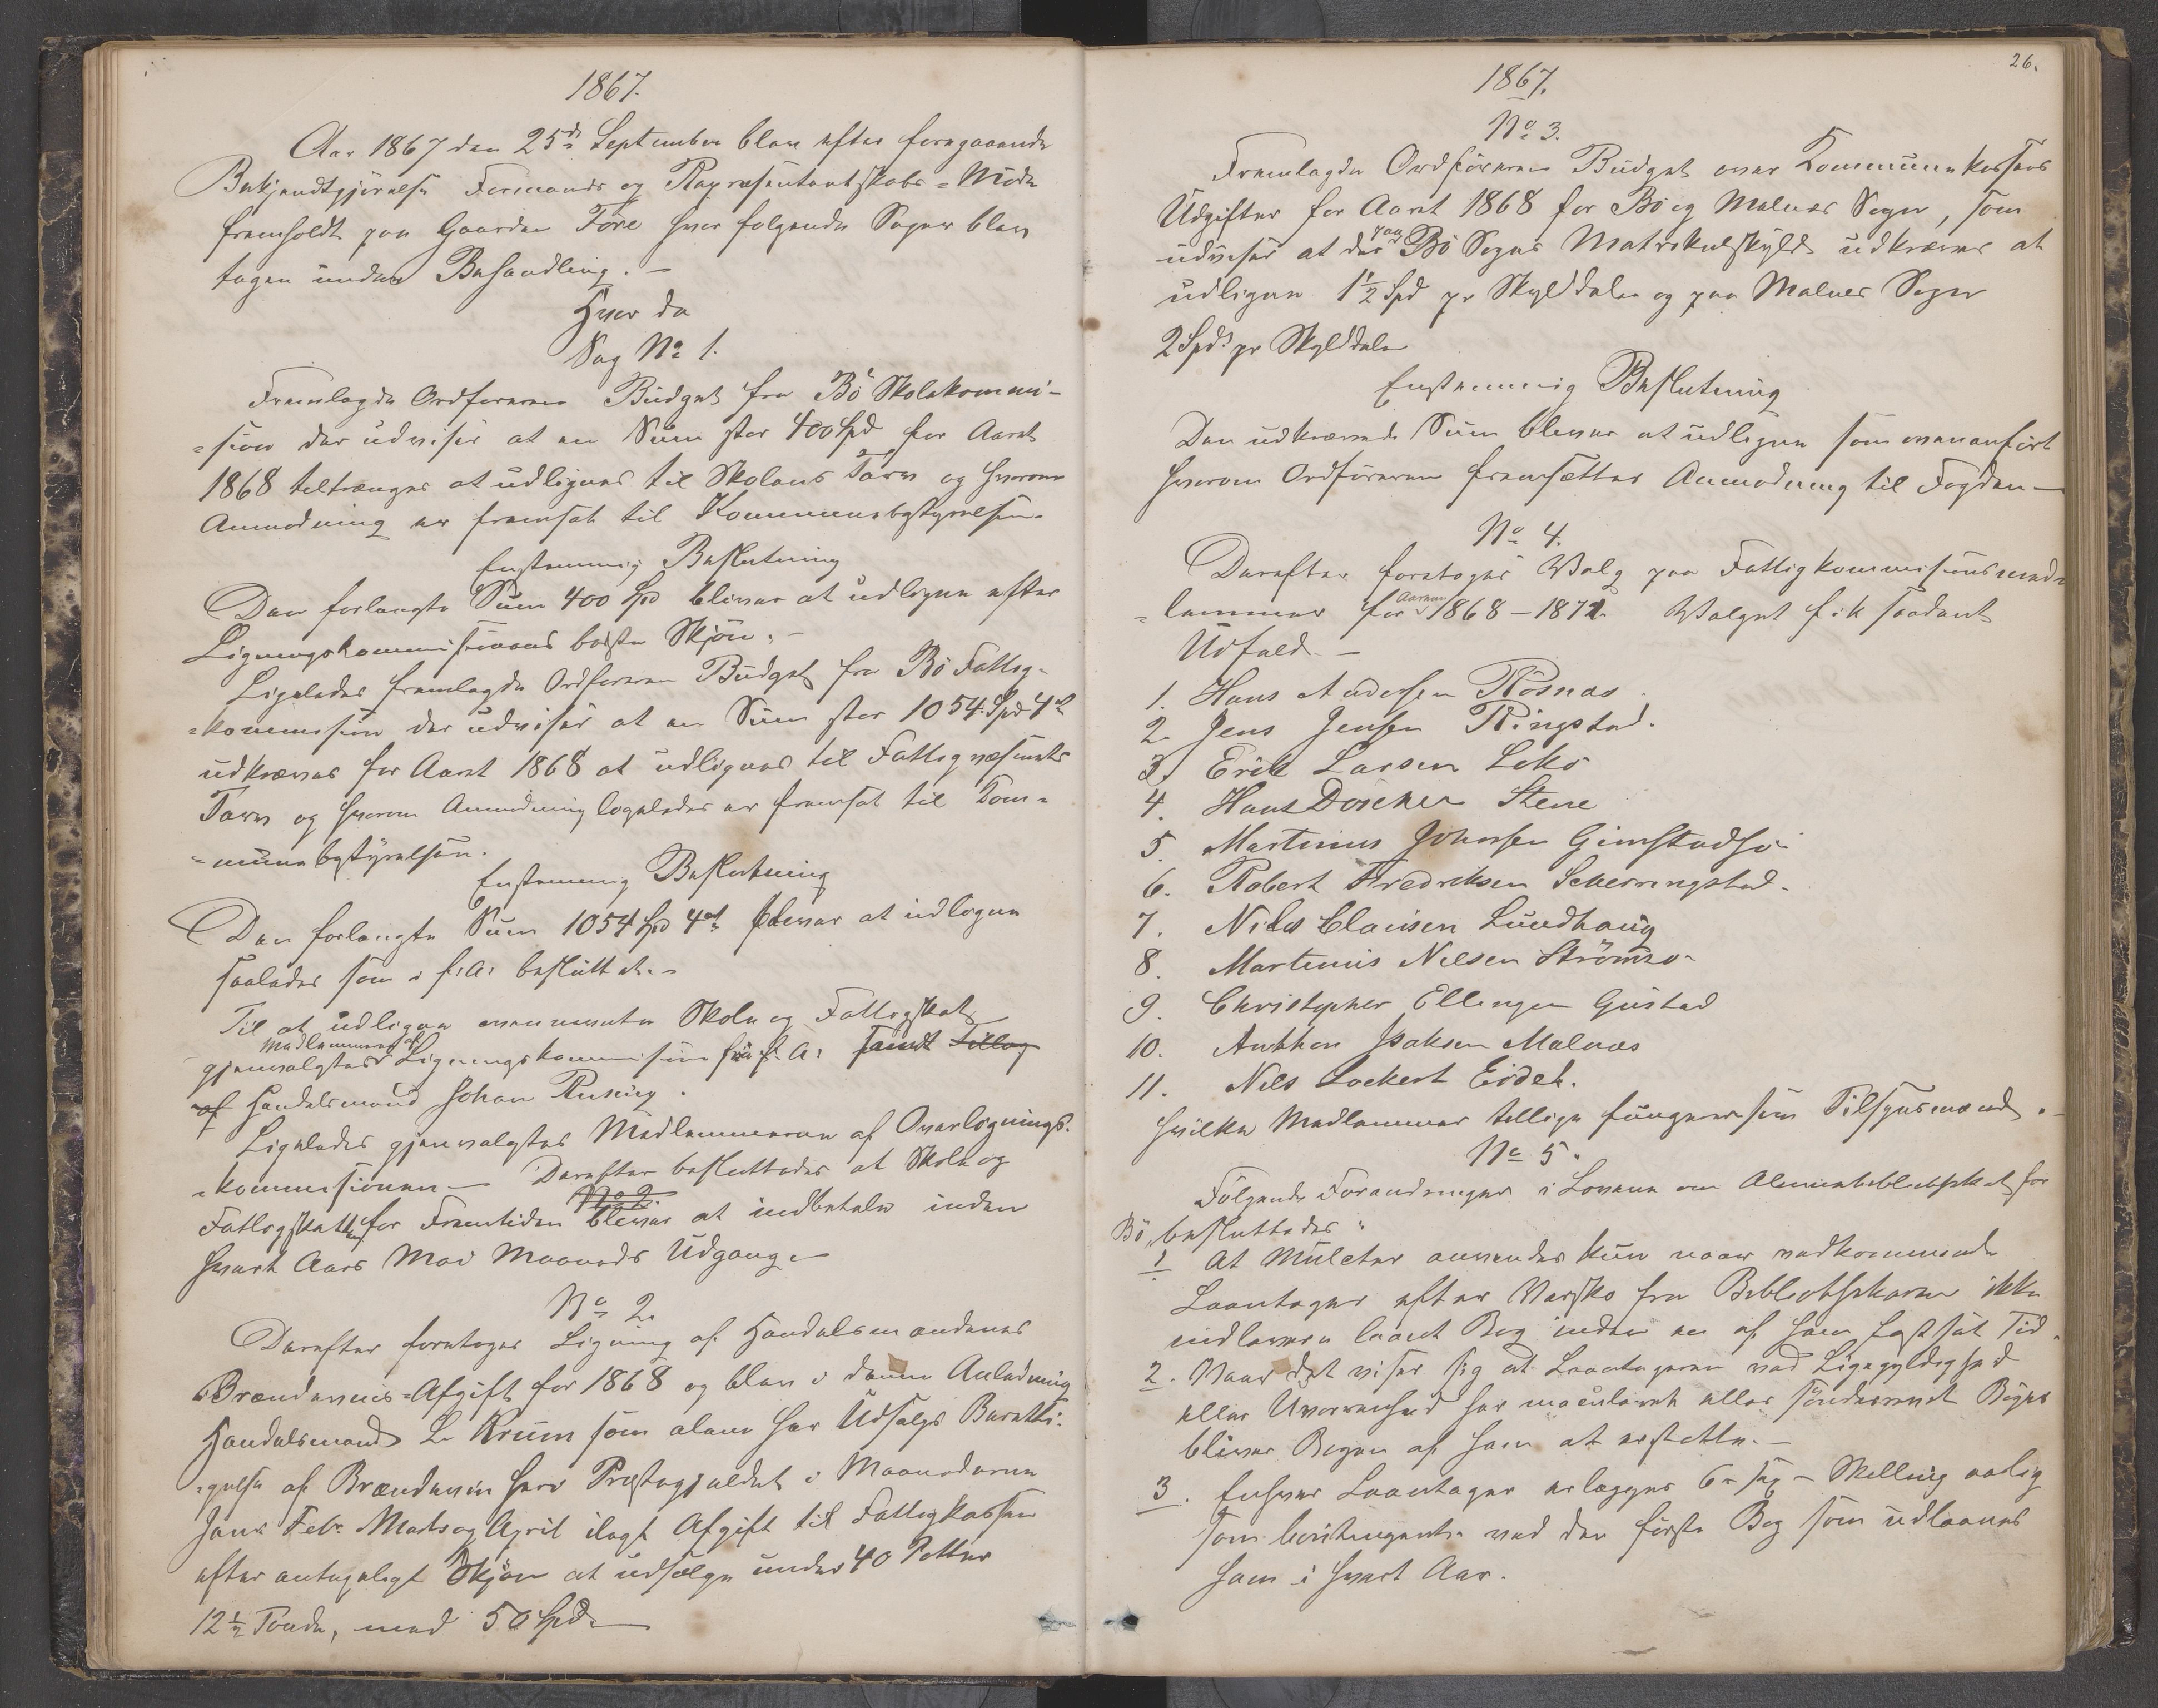 1867.
Aar 1867 den 25de September blev efter foregaaende
Bekjendtgjørelse Formands og Repræsentantskabs-Møde
fremholdt paa Gaarden Føre hvor følgende Sager blev
tagen under Behandling. -
Hvor da
Sag No 1.
Fremlagde Ordføreren Budget fra Bø Skolekommi-
-sion der udviser at en Sum stor 400 Spd for Aaret
1868 tiltrænges at udlignes til Skolens Tarv og hvorom
Anmodning er fremsat til Kommunebestyrelsen.
Enstemmig Beslutning
Den forlangte Sum 400 Spd bliver at udligne efter
Ligningskommisionens bedste Skjøn. -
Ligeledes fremlagde Ordføreren Budget fra Bø Fattig-
-kommision der udviser at en Sum stor 1054 Spd 4 ort
udkræves for Aaret 1868 at udlignes til Fattigvæsenets
Tarv og hvorom Anmodning ligeledes er fremsat til Kom-
-munebestyrelsen.
Enstemmig Beslutning
Den forlangte Sum 1054 Spd 4 ort bliver at udligne
saaledes som i f: A: besluttet. -
Til at udligne ovennevnte Skole og Fattigskat
gjenvalgtes Medlemmerne af Ligningskommision for f. A: samt tillag
af Handelsmand Johan Rusing.
Ligeledes gjenvalgtes Medlemmerne af Overlignings-
-kommisionen - Derefter besluttedes at Skole og
No 2.
Fattigskatten for Fremtiden bliver at indbetale inden
hvert Aars Mai Maaneds Udgang. -
No 2.
Derefter foretoges Ligning af Handelsmændenes
Brændevins-Afgift for 1868 og blev i denne Anledning
Handelsmand L Krum som alene har Udsalgs Beretti-
-gelse af Brændevin hero Præstegjeldet i Maanederne
Janr Febr Marts og April ilagt Afgift til Fattigkassen
efter antageligt Skjøn at udsælge under 40 Potter
12½ Tønde, med 50 Spd. -
26.
1867.
No 3.
Fremlagde Ordføreren Budget over Kommunekassens
Udgifter for Aaret 1868 for Bø og Malnes Sogne, som
udviser at der paa Bø Sogns Matrikulskyld udkræves at
udligne 1½ Spd pr Skylddaler og paa Malnes Sogn
2 Spd pr Skylddaler
Enstemmig Beslutning
Den udkrævende Sum bliver at udligne som ovenanført
hvorom Ordføreren fremsætter Anmodning til Fogden -
No 4.
Derefter foretoges Valg paa Fattigkommisionsmed-
-lemmer for Aarene 1868-1871. Valget fik saadant
Udfald. -
1. Hans Andersen Røsnæs.
2. Jens Jensen Ringstad.
3. Erik Larsen Lekø
4. Hans Døscher Stene
5. Martinus Johnsen Gimstadsø
6. Robert Fredriksen Scherringstad.
7. Nils Clausen Lundhaug
8. Martinus Nilsen Strømsø
9. Christopher Ellingsen Gustad
10. Anthon Isaksen Malnæs
11. Nils Lockert Eidet.
hvilke Medlemmer tillige fungere som Tilsynsmænd. -
No 5.
Følgende Forandringer i Lovene om Almuebibliothekat for
Bø, besluttedes:
1 At Mulcter anvendes kun naar vedkommende
Laantager efter Varsko fra Bibliothekaren ikke
indleverer laant Bog inden en af ham fastsat Tid.
2. Naar det viser sig at Laantageren ved Ligegyldighed
eller Uvorrenhed har maculeret eller sønderrevet Bøger
bliver Bogen af ham at erstatte. -
3. Enhver Laantager erlægger 6 - sex - Skilling aarlig
som Contingent ved den første Bog som udlaanes
ham i hvert Aar.